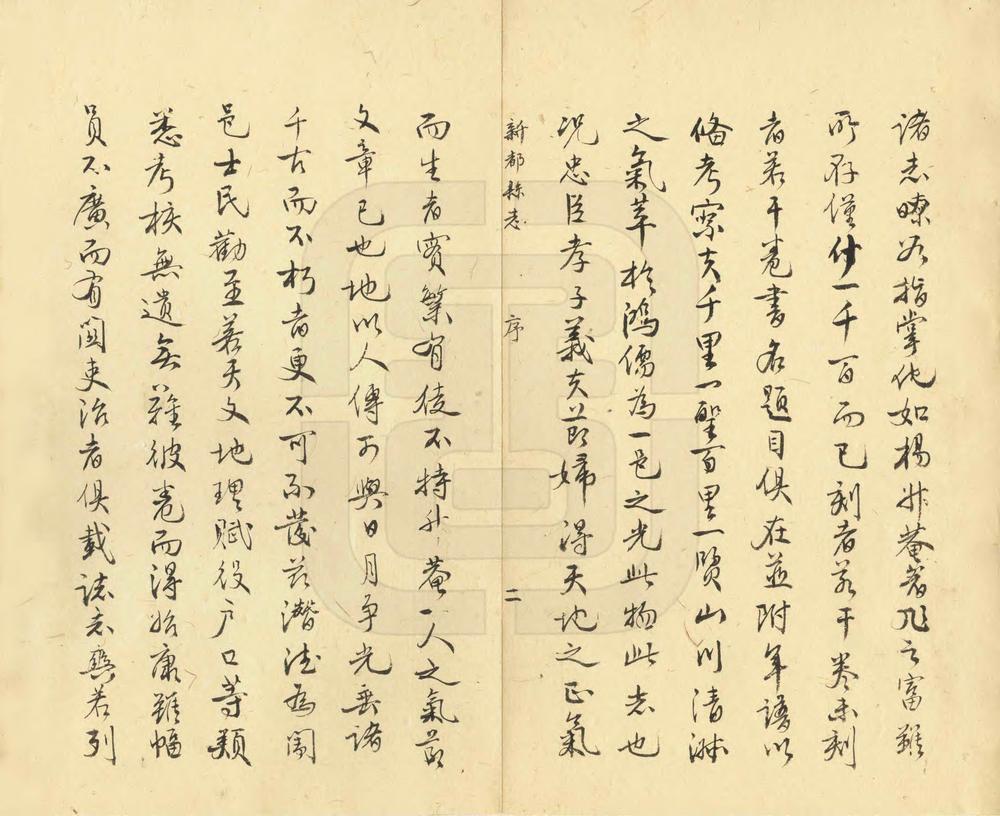 諸志瞭若指掌他如楊升菴著述之富雖
所存僅什一千百而已刻者若干卷未刻
者若干卷書名題目俱在並附年譜以
備考察夫千里一聖百里一賢山川清淑
之氣萃於鴻儒為一邑之光此物此志也
況忠臣孝子義夫節婦得天地之正氣
新都縣志 序 二
而生者實繁有徒不特升菴一人之氣節
文章已也地以人傳可與日月爭光垂諸
千古而不朽者更不可不發茲潛德為闔
邑士民勸至若天文地理賦役戶口等類
悉考核無遺無難彼卷而得治康雖幅
員不廣而有關吏治者俱載誌志與若列